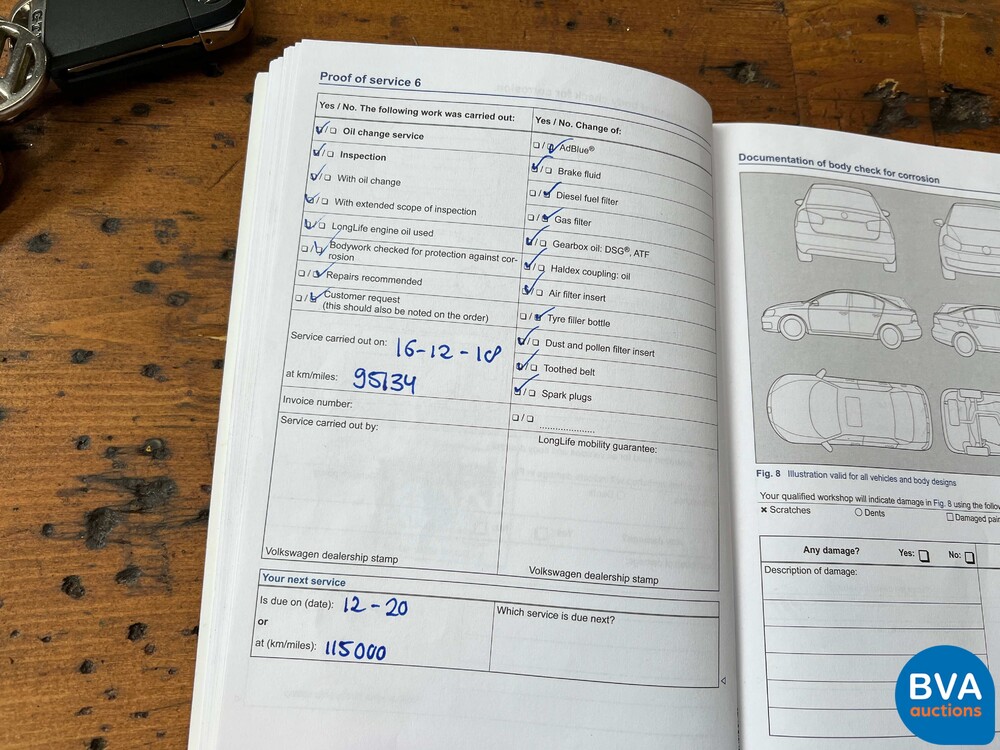 Proof of service 6
Yes / No. The following work was carried out:
☑/☐ Oil change service
☑/☐ Inspection
☑/☐ With oil change
☑/☐ With extended scope of inspection
☑/☐ LongLife engine oil used
☐/☑ Bodywork checked for protection against cor-
rosion
☐/☑ Repairs recommended
☐/☑ Customer request
(this should also be noted on the order)
Service carried out on: 16-12-18
at km/miles: 95134
Invoice number:
Service carried out by:
Volkswagen dealership stamp
Yes / No. Change of:
☐/☑ AdBlue®
☑/☐ Brake fluid
☐/☑ Diesel fuel filter
☐/☑ Gas filter
☑/☐ Gearbox oil: DSG®, ATF
☑/☐ Haldex coupling: oil
☑/☐ Air filter insert
☐/☑ Tyre filler bottle
☑/☐ Dust and pollen filter insert
☑/☐ Toothed belt
☑/☐ Spark plugs
☐/☐ .....................
LongLife mobility guarantee:
Volkswagen dealership stamp
Your next service
Is due on (date): 12-20
or
at (km/miles): 115000
Which service is due next?
Documentation of body check for corrosion
Fig. 8 Illustration valid for all vehicles and body designs
Your qualified workshop will indicate damage in Fig. 8 using the
× Scratches ○ Dents ☐ Damaged
Any damage? Yes: ☐ No: ☐
Description of damage:
BVA
auctions